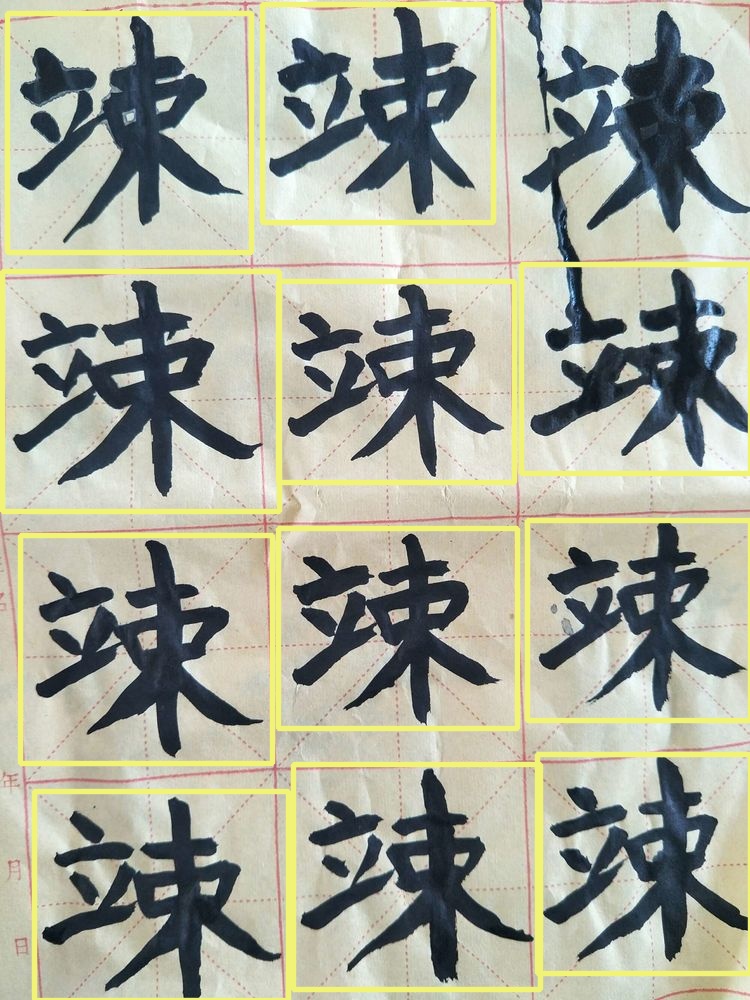 竦竦竦
竦竦竦
竦竦竦
竦竦竦
年月日